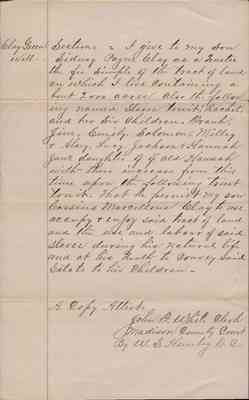 Clay Green
Will
Section - I give to my son
Sidney Payne Clay as a Trustee
the fee simple of the tract of land
on which I live containing a
bout 2000 acres. Also the follow
ing named slaves Rachel
and her six children. Frank,
Jim, Emily, Solomon, Milley
& Mary, Lucy, Jackson & Hannah
Jane daughter of old Hannah
with their increase from this
time upon the following trust
to wit: That he permit my son
Cassius Marcellous Clay to use
occupy & enjoy said tract of land
and the use and labour of said
slaves during his natural life
and at his death to convey said
Estate to his children.
A Copy Attest
John White Clerk
Madison County Court
By W. D. C.